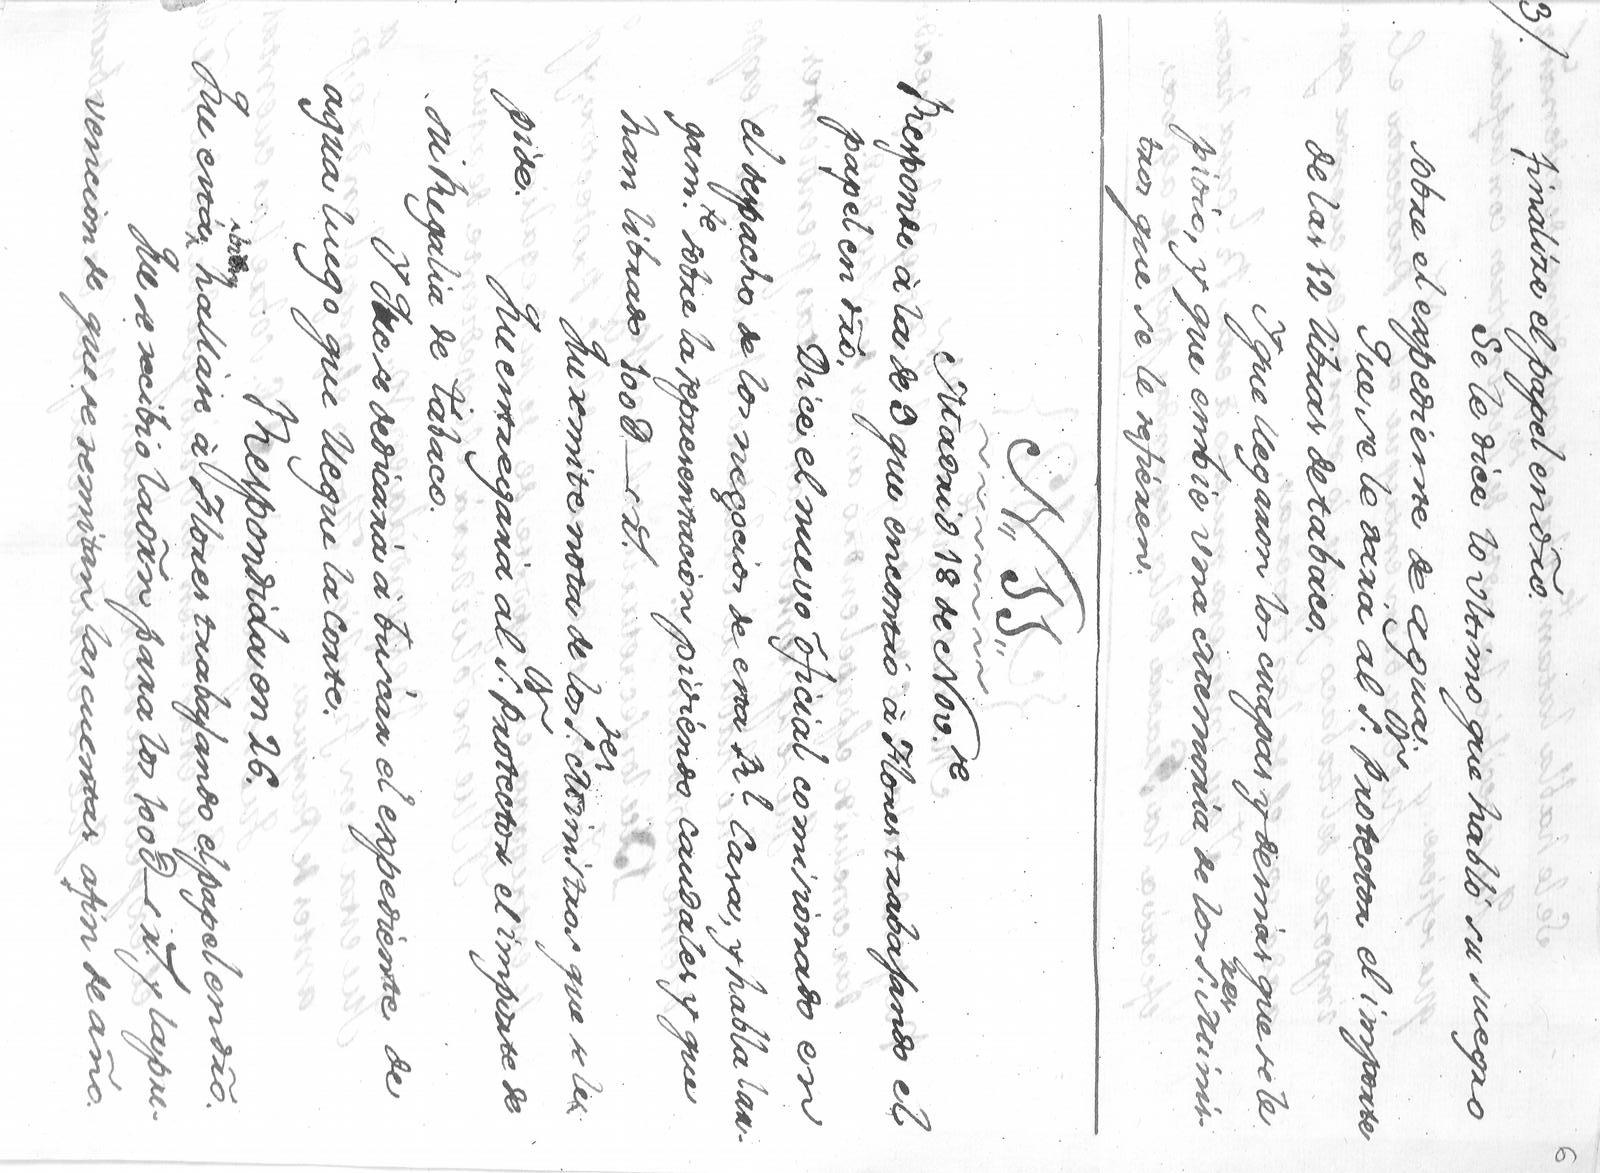 3).
findose el papel endño.
Se le dice lo ultimo que habló su suegro
sobre el expediente de aguas.
Que se le dará al S.or protector el importe
de las 12 libras de tabaco.
Y que llegaron los cuapas y demas que se le
pidió, y que embie una catemonia de los S.res Minis-
tros que se le refieren.
N,, 55,,
Madrid 18 de Nov.re
Responde à la de 9 que encontró à Flores trabajando el
papel en dño.
Dice el nuevo oficial comisionado en
el despacho de los negocios de esta R.l Casa, y habla lar-
gam.te sobre la representacion pidiendo caudales y que
han librado 100 D r.s
Que remite nota de los S.res Ministros que se les
pide.
Que entregará al S.or Protector el importe de
su Regalia de tabaco.
Y Que se dedicará à buscar el expediente de
aguas luego que llegue la corte.
Respondida en 26.
Que està bien hallase à Flores trabajando el papel en dño.
Que se recibió la orn para los 100 D r.s y la pre-
vencion de que se remitan las cuentas afin de año.
6